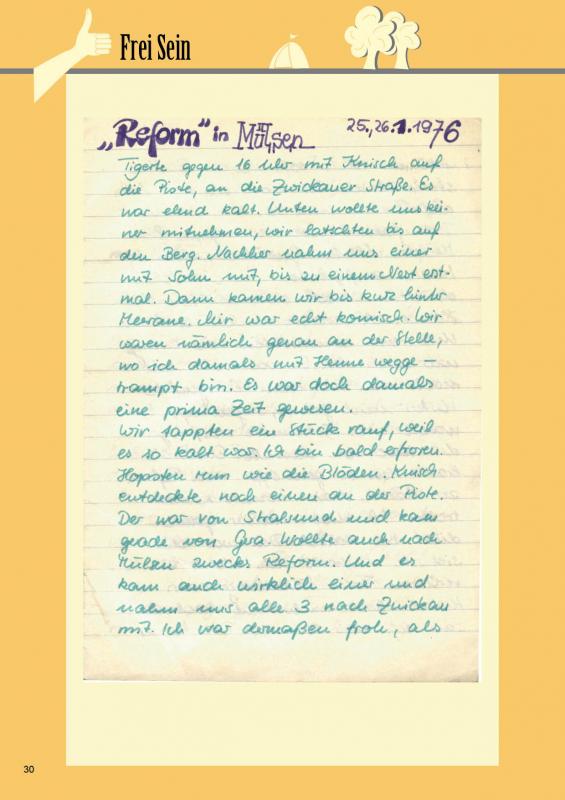 Frei Sein
„Reform“ in Mülsen 25.,26.1.1976
Tigerte gegen 16 Uhr mit Knisch auf
die Piste, an die Zwickauer Straße. Es
war elend kalt. Unten wollte uns kei-
ner mitnehmen, wir latschten bis auf
den Berg. Nachher nahm uns einer
mit Sohn mit, bis zu einem Nest erst-
mal. Dann kamen wir bis kurz hinter
Meerane. Mir war echt komisch. Wir
waren nämlich genau an der Stelle,
wo ich damals mit Henne wegge-
trampt bin. Es war doch damals
eine prima Zeit gewesen.
Wir sappten ein Stück rauf, weil
es so kalt war. Ich bin bald erfroren.
Hopsten rum wie die Blöden. Knisch
entdeckte noch einen an der Piste.
Der war von Stralsund und kam
grade von Gera. Wollte auch nach
Mülsen zwecks Reform. Und es
kam auch wirklich einer und
nahm uns alle 3 nach Zwickau
mit. Ich war dermaßen froh, als
30